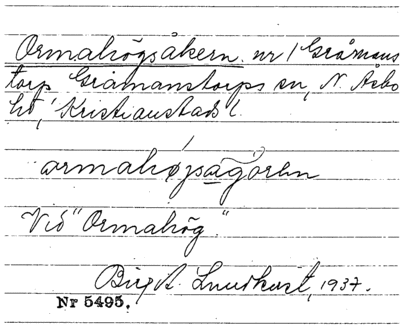 Ormahögsåkern. nr 1 Gråmans
torp Gråmanstorps sn, N. Åsbo
hd, Kristianstads l.
ormahøjsagoren
Vid "Ormahög."
Birgit Lundkvist, 1937.
Nr 5495.